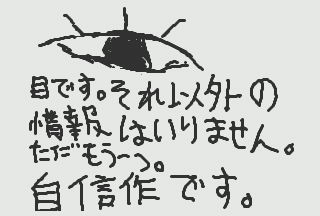 目です。それ以外の
情報はいりません。
ただもう一つ。
自信作です。